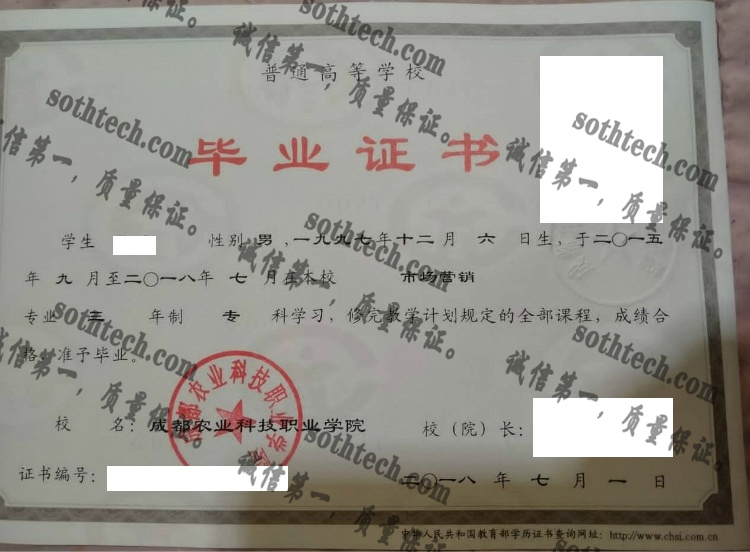 普通高等学校
毕业证书
学生 性别 男 ,一九九七年十二月 六 日生,于二〇一五
年 九 月至二〇一八年 七 月在本校 市场营销
专业 三 年制 专 科学习,修完教学计划规定的全部课程,成绩合
格,准予毕业。
成都农业科技职业学院
校 名: 成都农业科技职业学院 校(院)长:
证书编号: 二〇一八 年 七 月 一 日
中华人民共和国教育部学历证书查询网址: http://www.chsi.com.cn
sothtech.com
诚信第一,质量保证。
sothtech.com
诚信第一,质量保证。
sothtech.com
诚信第一,质量保证。
sothtech.com
诚信第一,质量保证。
sothtech.com
诚信第一,质量保证。
sothtech.com
诚信第一,质量保证。
sothtech.com
诚信第一,质量保证。
sothtech.com
诚信第一,质量保证。